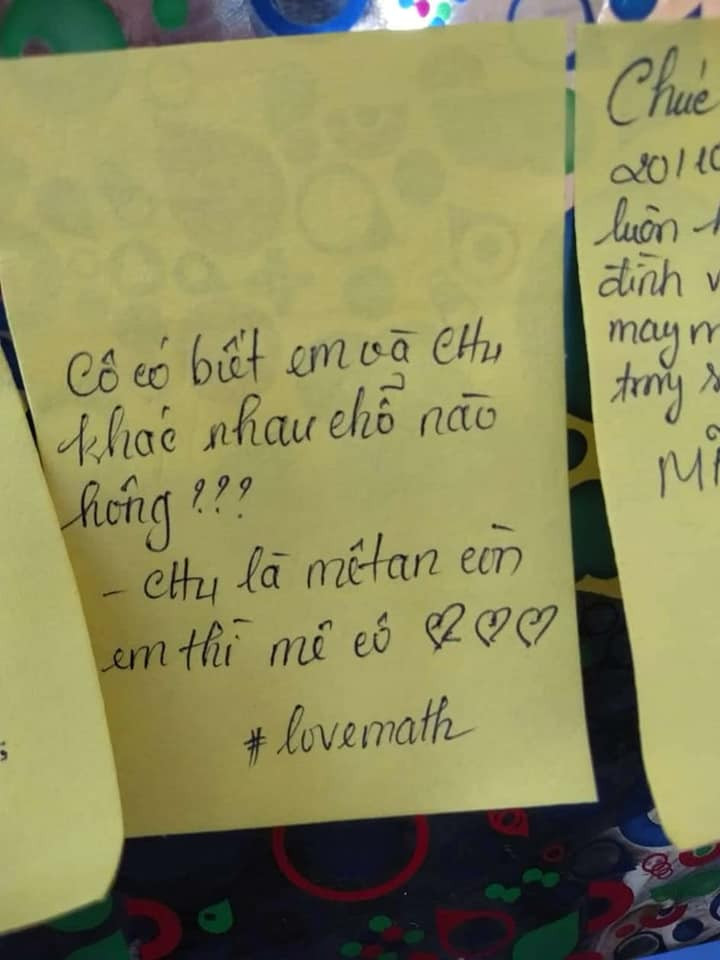 Cô có biết em và CH4
khác nhau chổ nào
hông ???
- CH4 là mêtan còn
em thì mê cô ♡♡♡
#lovemath
Chúc
20/10
luôn
đình
may
trong